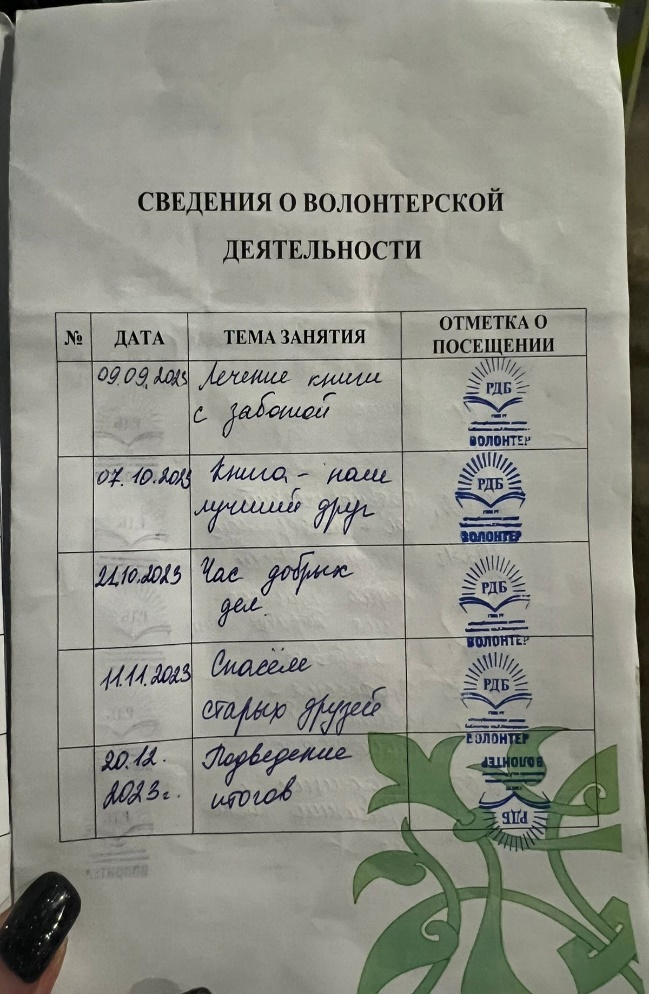 СВЕДЕНИЯ О ВОЛОНТЕРСКОЙ
ДЕЯТЕЛЬНОСТИ
№ ДАТА ТЕМА ЗАНЯТИЯ ОТМЕТКА О ПОСЕЩЕНИИ
09.09.2023 Лечение книги
с заботой
РДБ
ВОЛОНТЕР
07.10.2023 Книга - наш
лучший друг
РДБ
ВОЛОНТЕР
21.10.2023 Час добрых
дел.
РДБ
ВОЛОНТЕР
11.11.2023 Спасём
старых друзей
РДБ
ВОЛОНТЕР
20.12. Подведение
2023г. итогов
ВОЛОНТЕР
РДБ